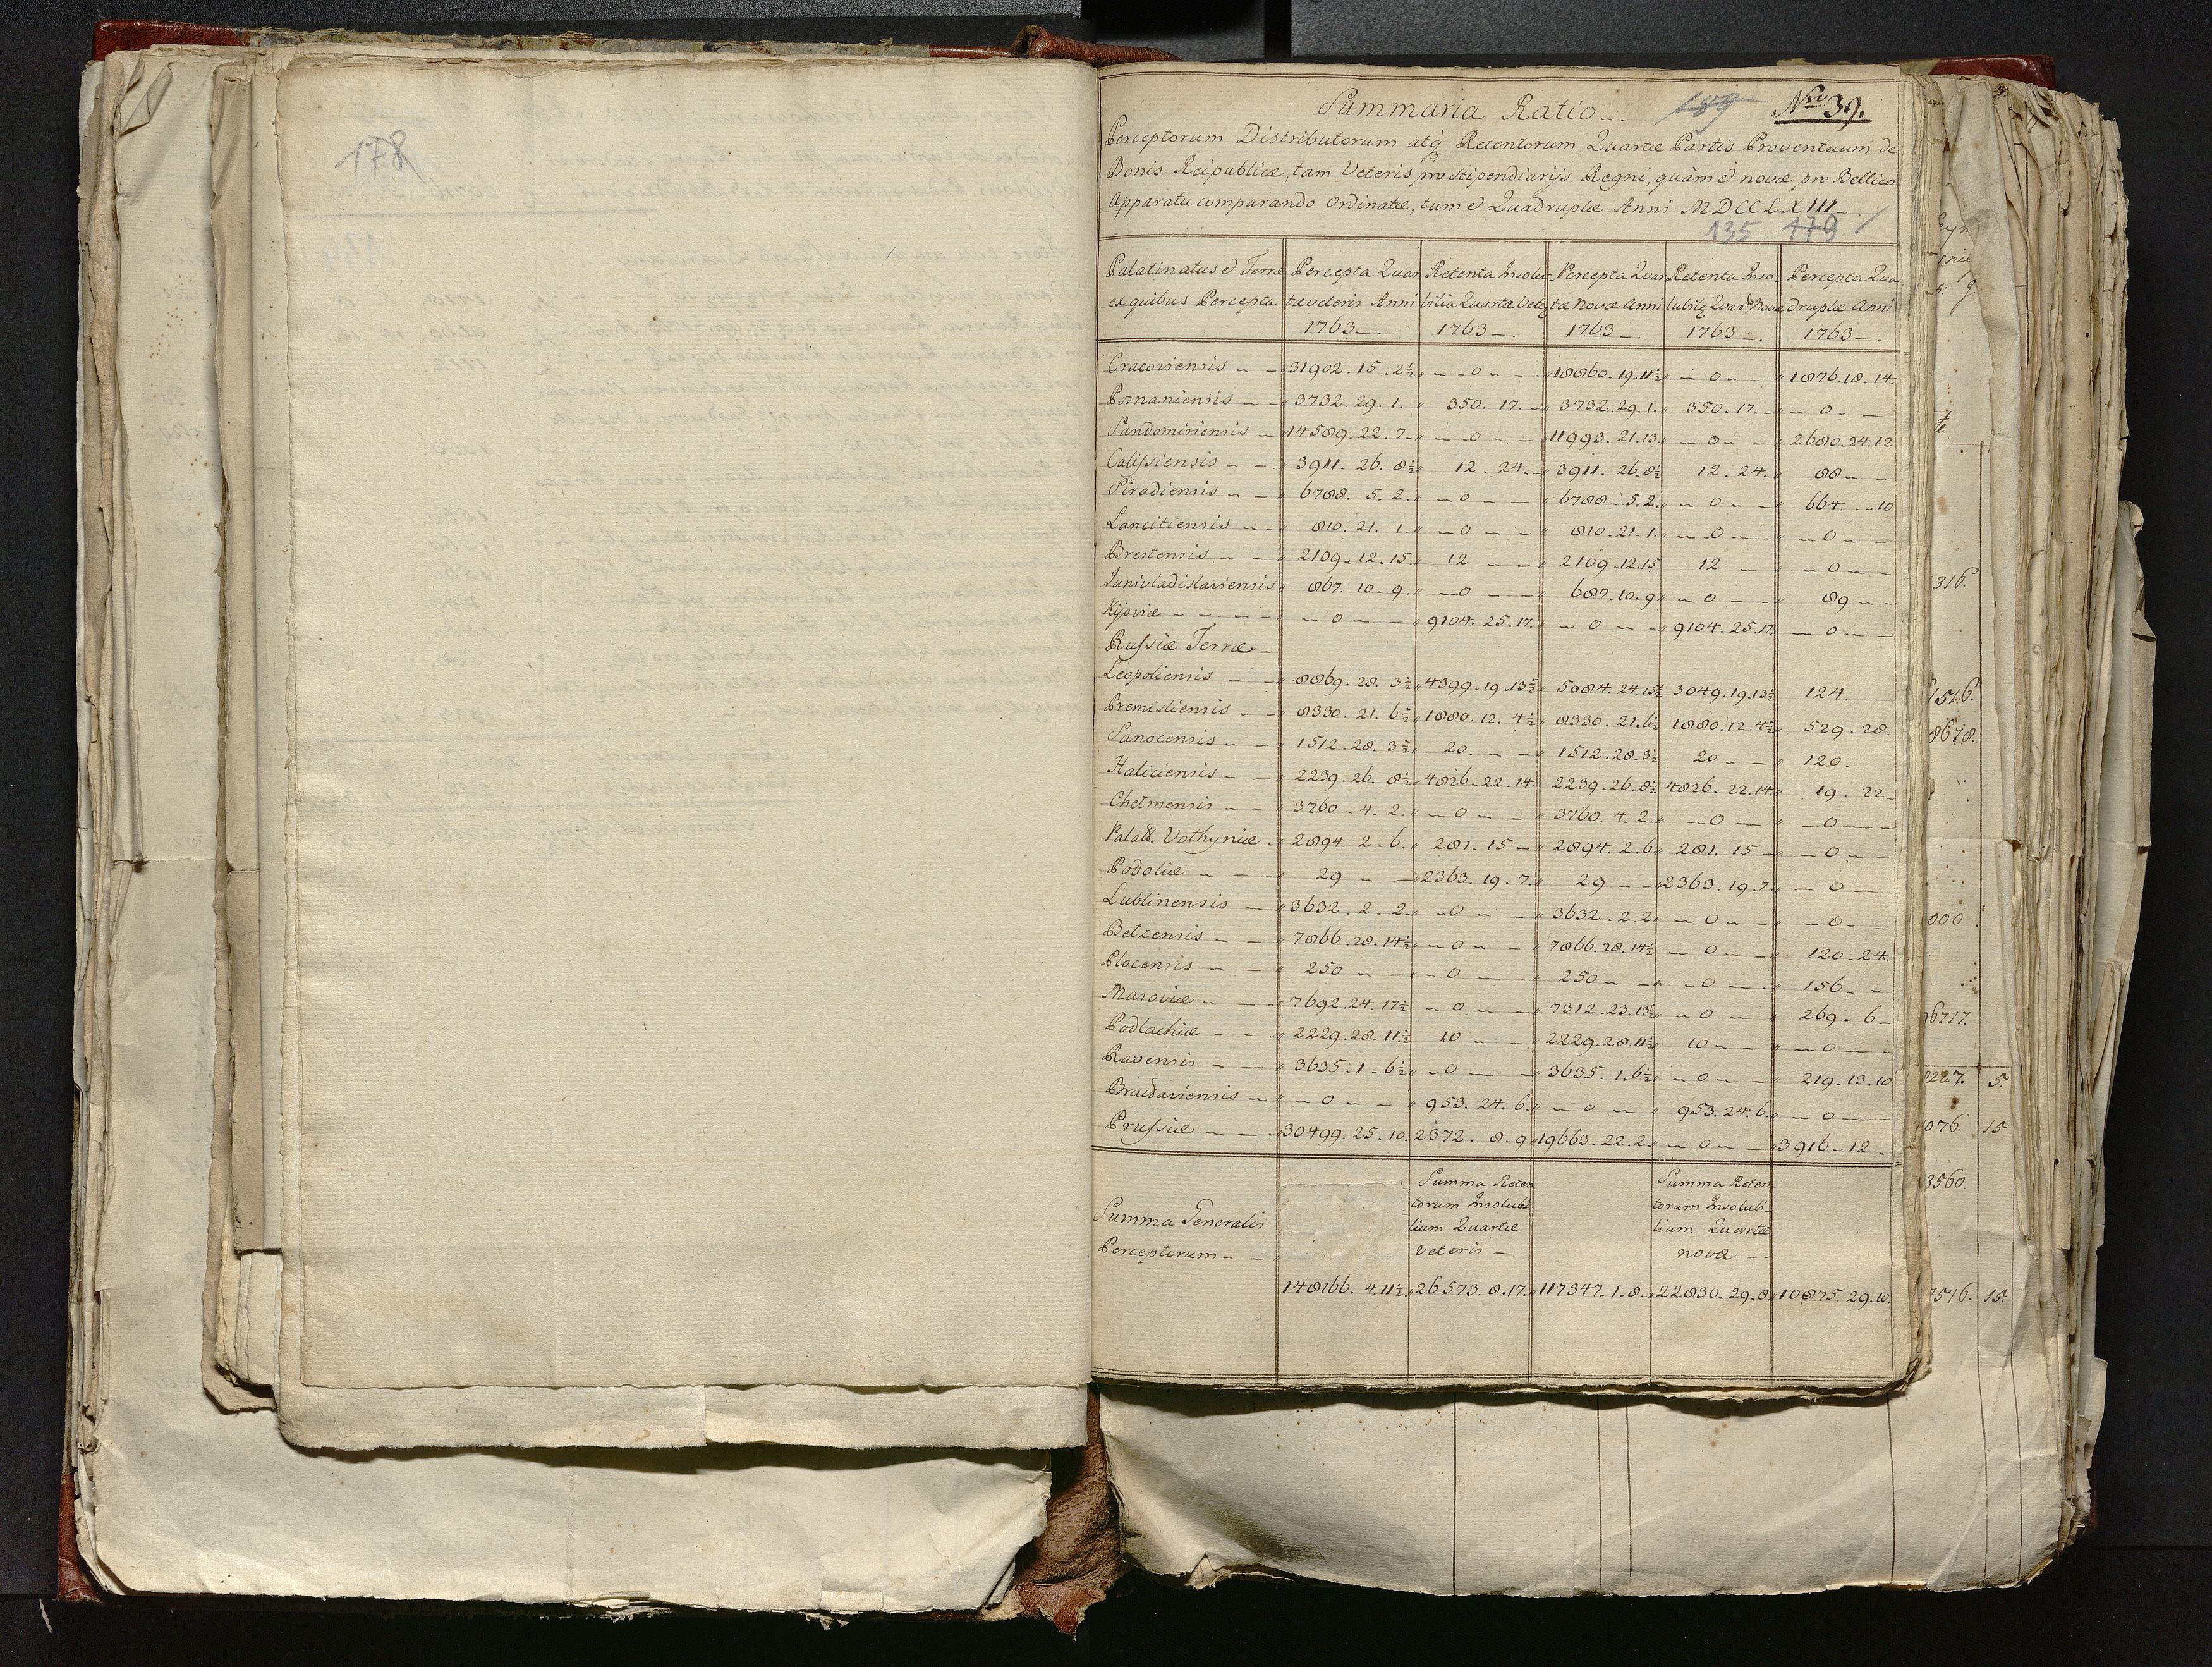 178
Summaria Ratio 189 Nro 39.
Perceptorum Distributorum atq Retentorum Quartæ Partis Proventuum de
Bonis Reipublicæ, tam Veteris pro Stipendiarijs Regni, quàm et novæ pro Bellico
Apparatu comparando Ordinatæ, tum et Quadruplæ Anni MDCCLXIII
135 179
Palatinatus et Terræ | Percepta Quar | Retenta Insolu- | Percepta Quar | Retenta Inso | Percepta Qua
ex quibus Percepta | tæ veteris Anni | bilia Quartæ Vete | tæ Novæ Anni | lubilia Quartæ Novæ | druplæ Anni
1763 | 1763 | 1763 | 1763 | 1763
Cracoviensis | 31902. 15. 2½ | 0 | 18860. 19. 11½ | 0 | 1876. 18. 14
Poznaniensis | 3732. 29. 1. | 350. 17. | 3732. 29. 1. | 350. 17. | 0
Sandomiriensis | 14589. 22. 7. | 0 | 11993. 21. 13. | 0 | 2680. 24. 12
Calissiensis | 3911. 26. 8½ | 12. 24. | 3911. 26. 8½ | 12. 24. | 88
Siradiensis | 6788. 5. 2. | 0 | 6788. 5. 2. | 0 | 664. 10
Lancitiensis | 810. 21. 1. | 0 | 810. 21. 1. | 0 | 0
Brestensis | 2109. 12. 15. | 12 | 2109. 12. 15 | 12 | 0
Junivladislaviensis | 867. 10. 9. | 0 | 687. 10. 9 | 0 | 89
Kijoviæ | 0 | 9104. 25. 17. | 0 | 9104. 25. 17. | 0
Russiæ Terræ
Leopoliensis | 8869. 28. 3½ | 4399. 19. 13½ | 5084. 24. 15½ | 3049. 19. 13½ | 124.
Premisliensis | 8330. 21. 6½ | 1880. 12. 4½ | 8330. 21. 6½ | 1880. 12. 4½ | 529. 28.
Sanocensis | 1512. 28. 3½ | 20. | 1512. 28. 3½ | 20 | 120.
Haliciensis | 2239. 26. 8½ | 4826. 22. 14. | 2239. 26. 8½ | 4826. 22. 14. | 19. 22
Chełmensis | 3760. 4. 2. | 0 | 3760. 4. 2. | 0 | 0
Palat. Vołhyniæ | 2894. 2. 6. | 281. 15 | 2894. 2. 6. | 281. 15 | 0
Podoliæ | 29 | 2363. 19. 7. | 29 | 2363. 19. 7. | 0
Lublinensis | 3632. 2. 2. | 0 | 3632. 2. 2 | 0 | 0
Bełzensis | 7866. 28. 14½ | 0 | 7866. 28. 14½ | 0 | 120. 24.
Plocensis | 250 | 0 | 250 | 0 | 156
Masoviæ | 7692. 24. 17½ | 0 | 7312. 23. 13½ | 0 | 269. 6
Podlachiæ | 2229. 28. 11½ | 10 | 2229. 28. 11½ | 10 | 0
Ravensis | 3635. 1. 6½ | 0 | 3635. 1. 6½ | 0 | 219. 13. 10
Bracłaviensis | 0 | 953. 24. 6. | 0 | 953. 24. 6. | 0
Prussiæ | 30499. 25. 10. | 2372. 8. 9 | 19663. 22. 2. | 0 | 3916. 12.
Summa Reten | Summa Reten
torum Insolubi | torum Insolubi-
Summa Generalis | lium Quartæ | lium Quartæ
Perceptorum | veteris | novæ
148166. 4. 11½. | 26573. 8. 17. | 117347. 1. 8. | 22830. 29. 8. | 10875. 29. 10.
316.
1516.
8678.
000
6717.
5.
076. 15
3560.
7516. 15.